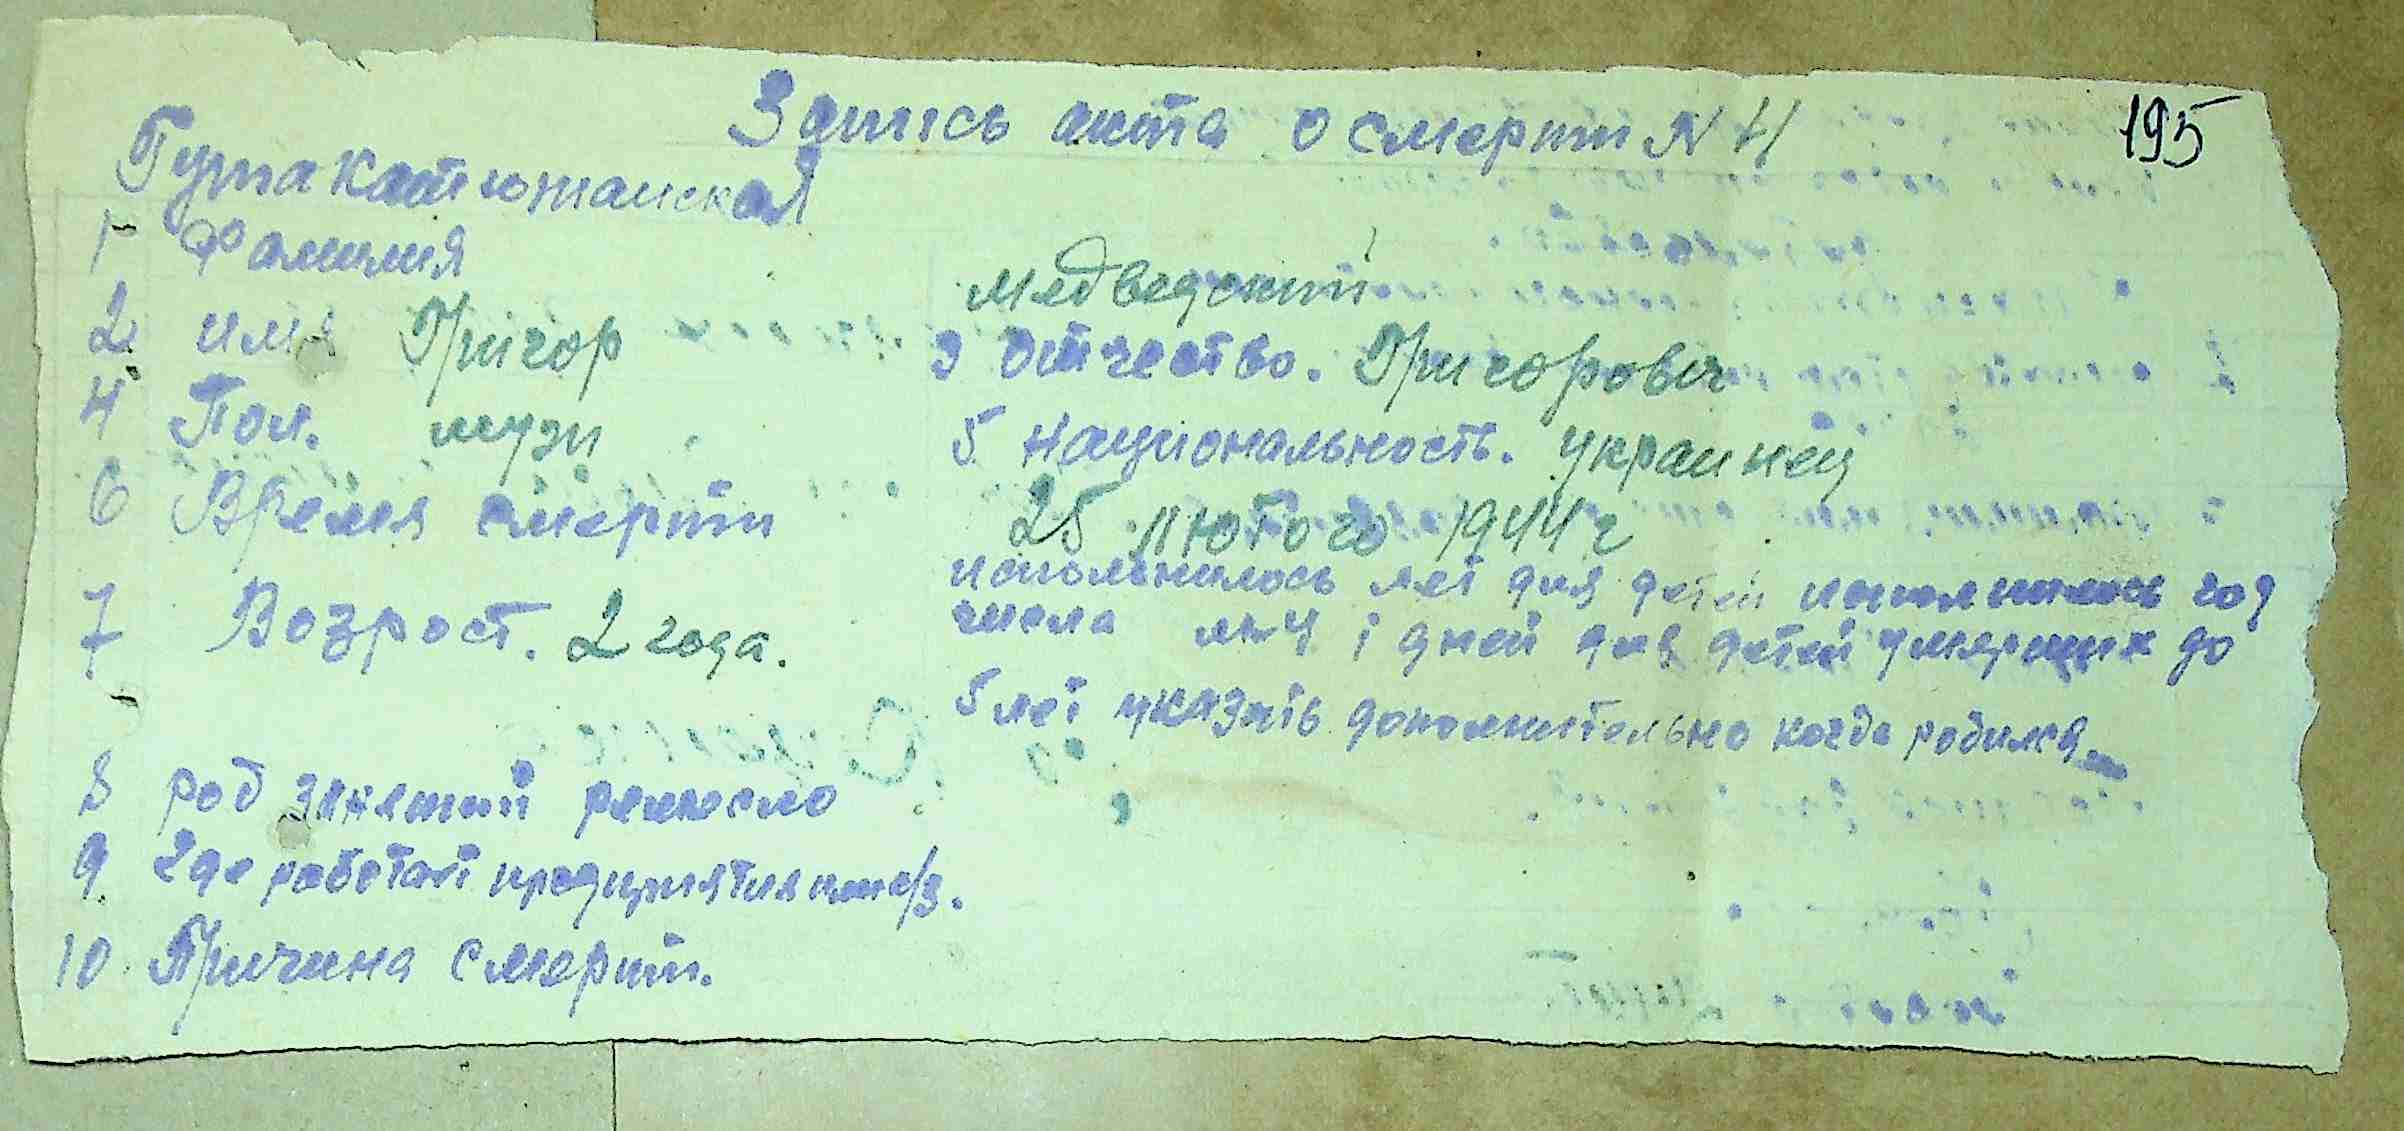 195
Запись акта о смерти N 4
Гута Катюжанская
1 Фамилия Медведский
2 имя Григор 3 Отчество. Григорович
4 Пол. музи 5 Национальность. украинец
6 Время смерти 25 лютого 1944 г
7 Возрост. 2 года. исполнилось лет для детей исполнилось год
числа м-ц і дней для детей умерших до
5 лет указать дополнительно когда родился.
8 род занятий ремесло
9. где работает предприятия
10 Причина смерти.